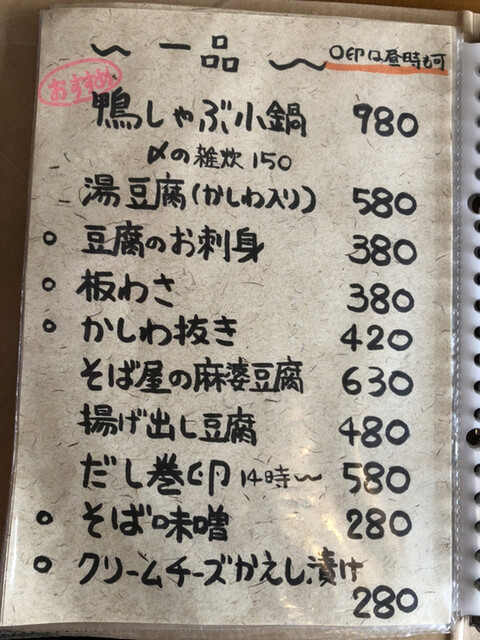 〜 一品 〜 〇印は昼時も可
おすすめ
鴨しゃぶ小鍋 980
〆の雑炊 150
湯豆腐(かしわ入り) 580
○ 豆腐のお刺身 380
○ 板わさ 380
○ かしわ抜き 420
そば屋の麻婆豆腐 630
揚げ出し豆腐 480
だし巻卵 14時〜 580
○ そば味噌 280
○ クリームチーズかえし漬け
280